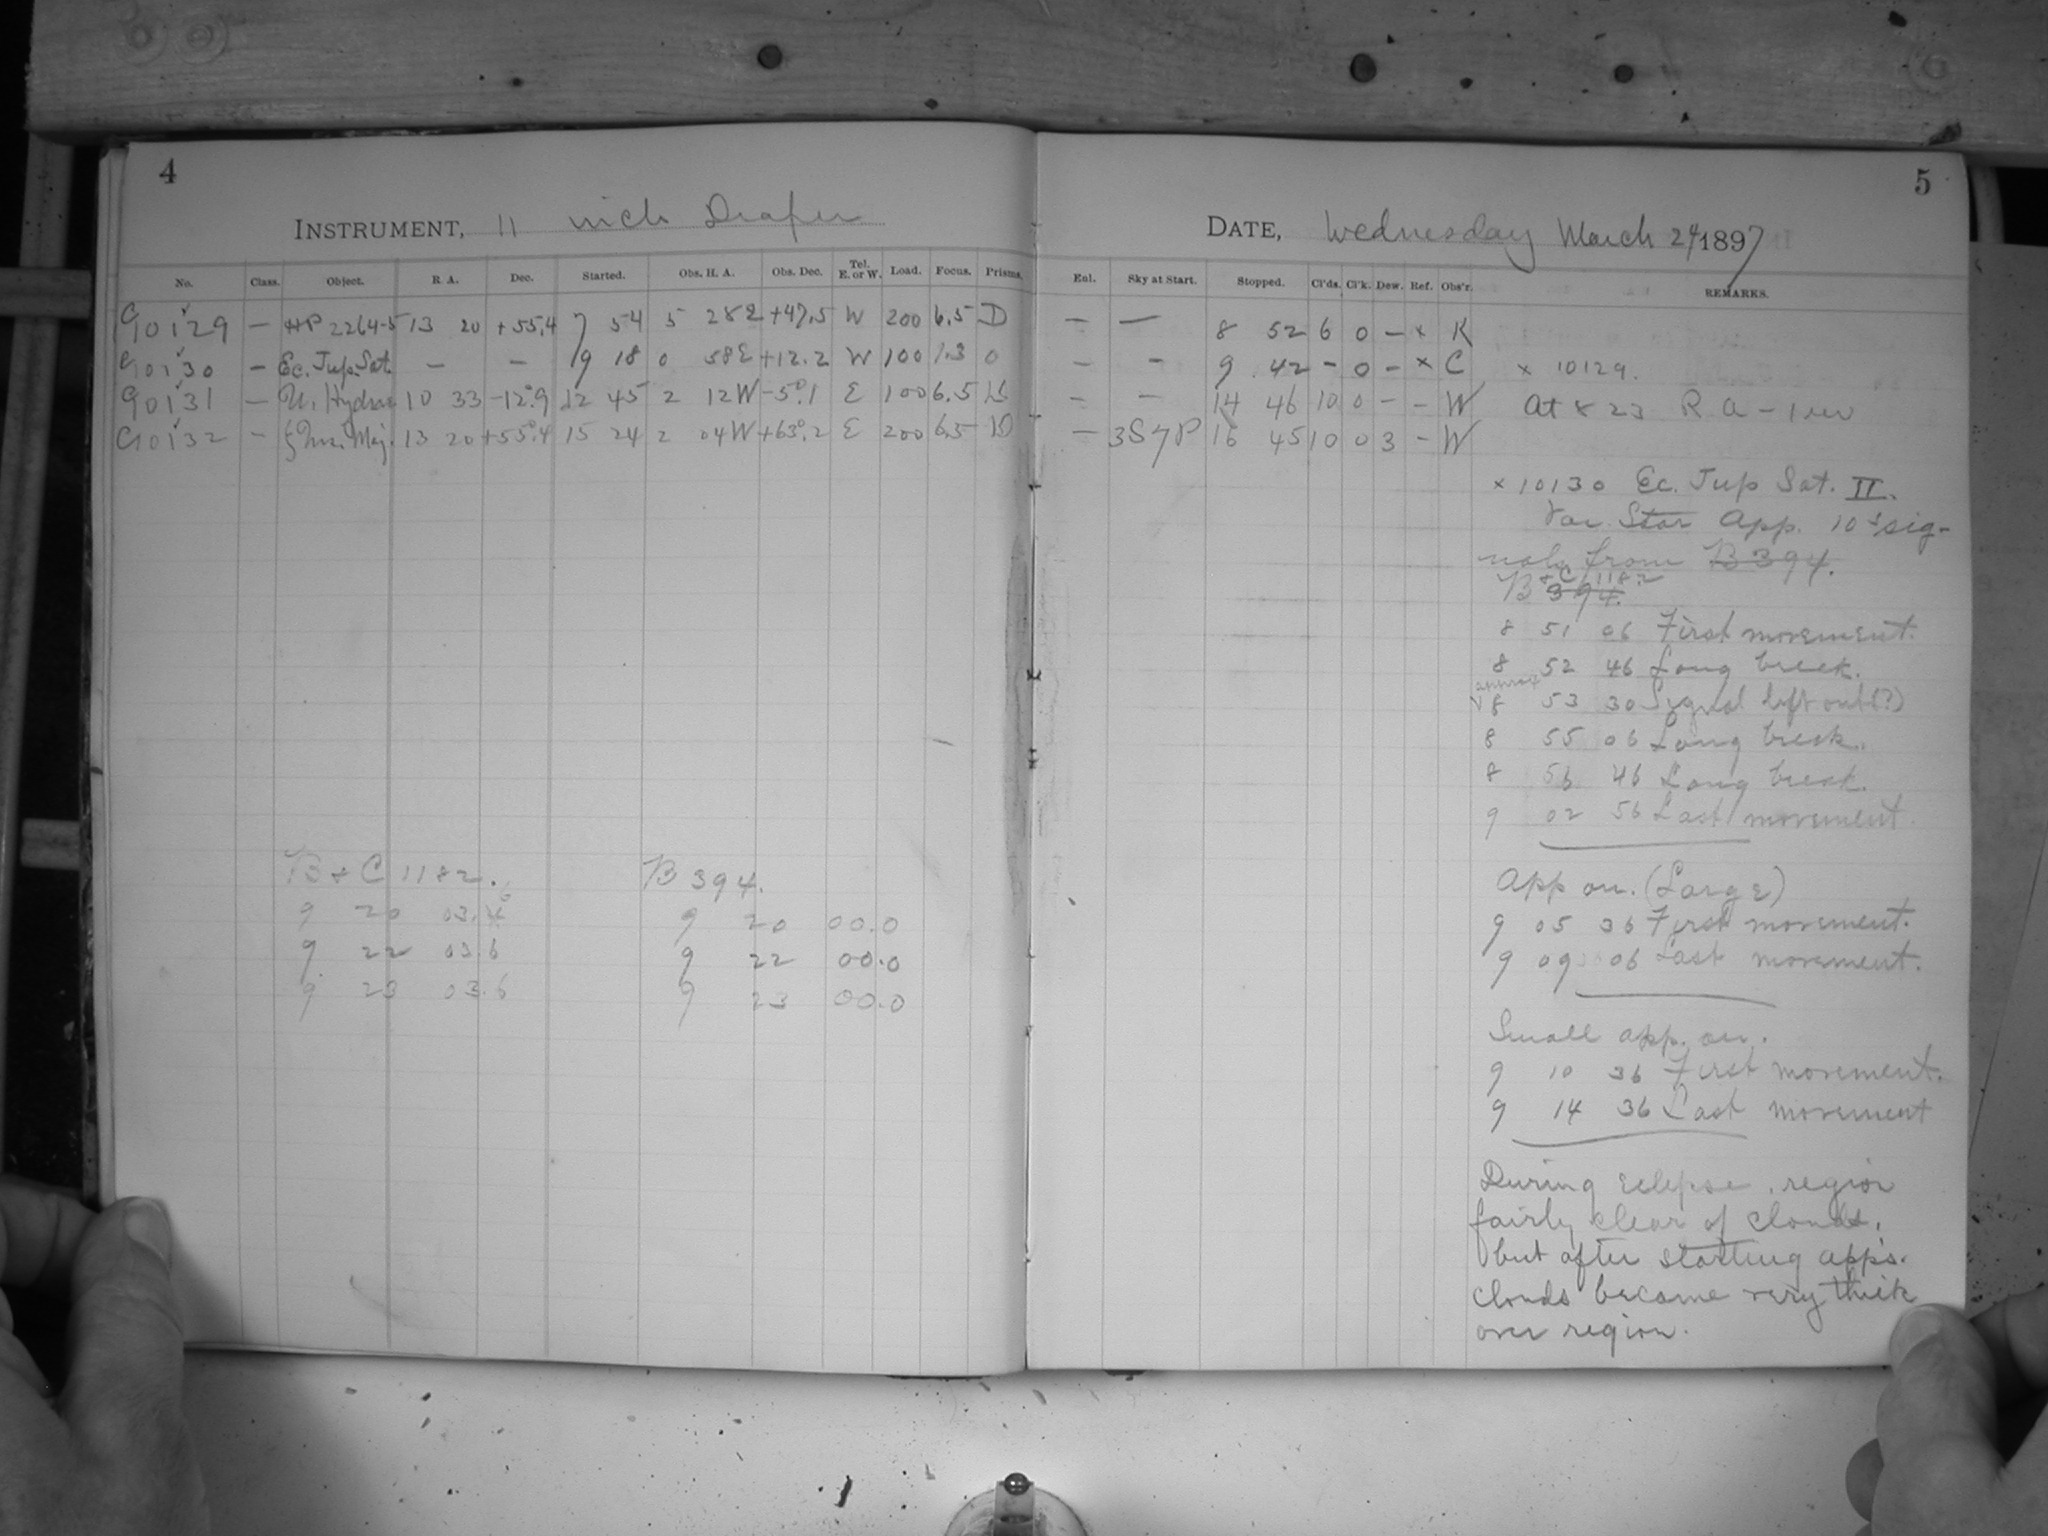 4
INSTRUMENT, 11 inch Draper
No. Class. Object. R. A. Dec. Started. Obs. H. A. Obs. Dec. Tel. E. or W. Load. Focus. Prisms.
C10129 — HP 2264-5 13 20 +55.4 7 54 5 28E +47.5 W 200 6.5 D
C10130 — Ec. Jup. Sat. — — 9 18 0 58E +12.2 W 100 1.3 0
C10131 — U. Hydrae 10 33 -12°.9 12 45 2 12W -5°.1 E 100 6.5 D
C10132 — ζ Urs. Maj. 13 20 +55°.4 15 24 2 04W +63°.2 E 200 6.5 D
B & C 1182. B 394.
9 20 03.6 9 20 00.0
9 22 03.6 9 22 00.0
9 23 03.6 9 23 00.0
5
DATE, Wednesday March 24 1897
Enl. Sky at Start. Stopped. Cl'ds. Cl'k. Dew. Ref. Obs'r. REMARKS.
— — 8 52 6 0 — x K
— — 9 42 — 0 — x C x 10129.
— — 14 46 10 0 — — W At 8 23 R A - 1 rev
— 3S7P 16 45 10 0 3 — W
x 10130 Ec. Jup Sat. II.
Var. Star App. 10 s sig-
nals from B 394.
B & C 1182
394.
8 51 06 First movement.
8 52 46 Long break.
approx
8 53 30 Signal left out(?)
8 55 06 Long break.
8 56 46 Long break.
9 02 56 Last movement.
App on. (Large)
9 05 36 First movement.
9 09 06 Last movement.
Small app. on.
9 10 36 First movement.
9 14 36 Last movement
During eclipse, region
fairly clear of clouds,
but after starting app's.
clouds became very thick
over region.